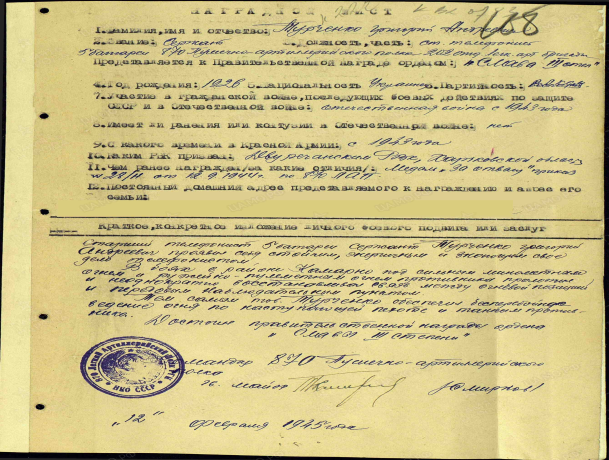 НАГРАДНОЙ ЛИСТ
118
1. Фамилия, имя и отчество: Турченко Григорий Андреевич
2. Звание: Сержант 3. Должность, часть: ст. телефонист
5 батареи 870 пушечно-артиллерийского полка
Представляется к Правительственной награде ордену: "Слава
4. Год рождения: 1926 5. Национальность Украинец 6. Партийность:
7. Участие в гражданской войне, последующих боевых действиях по защите
СССР и в Отечественной войне: отечественная война с 1943 года
8. Имеет ли ранения или контузии в Отечественной войне: нет
9. С какого времени в Красной Армии: с 1943 года
10. Каким РВК призван: Двуречанским РВК, Харьковской области
11. Чем ранее награжден /за какие отличия/: Медаль "За отвагу" приказ
12. Постоянный домашний адрес представляемого к награждению и адрес его
семьи:
Краткое, конкретное изложение личного боевого подвига или заслуг
Старший телефонист 5 батареи Сержант Турченко Григорий
Андреевич проявил себя стойким, энергичным и знающим свое
дело телефонистом.
В боях в районе Комарно под сильным минометным
огнем и ружейно-пулеметным огнем противника
и неоднократно восстанавливал связь между огневой позицией
и передовым наблюдательным пунктом
Тем самым тов. Турченко обеспечил бесперебойное
ведение огня по наступающей пехоте и танкам против-
ника.
Достоин правительственной награды ордена
"Слава III степени"
Командир 870 Пушечно-артиллерийского
полка
гв. майор Смирнов
"12" февраля 1945 года
НКО СССР